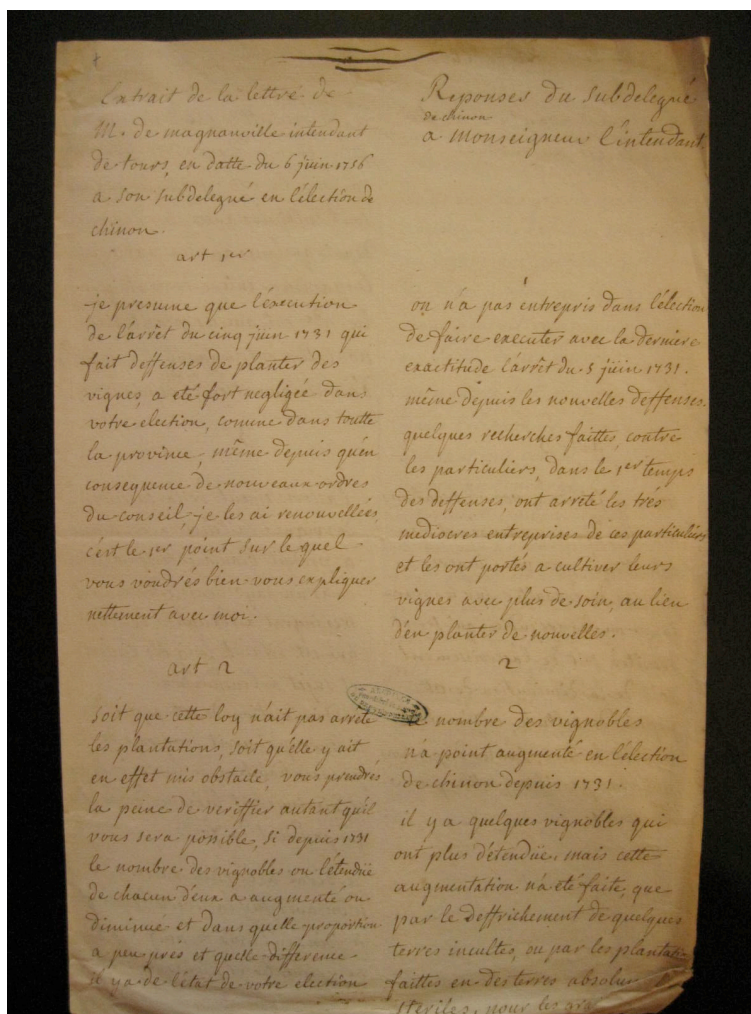 Extrait de la lettre de
M. de magnanville intendant
de tours, en datte du 6 juin 1756
a son subdelegué en l'élection de
chinon.
art 1er
je presume que l'éxecution
de l'arrêt du cinq juin 1731 qui
fait deffenses de planter des
vignes, a eté fort negligée dans
votre election, comme dans toutte
la province, même depuis qu'en
consequence de nouveaux ordres
du conseil, je les ai renouvellées
c'ést le 1er point sur le quel
vous voudrés bien vous expliquer
nettement avec moi.
art 2
soit que cette loy n'ait pas arrêté
les plantations, soit qu'elle y ait
en effet mis obstacle, vous prendrés
la peine de veriffier autant qu'il
vous sera possible, si depuis 1731
le nombre des vignobles ou l'étendüe
de chacun d'eux a augmenté ou
diminué et dans quelle proportion
a peu prés et quelle difference
il y a de l'état de votre election
Reponses du subdelegué
de chinon
a monseigneur l'intendant.
on n'a pas entrepris dans l'élection
de faire executer avec la derniere
exactitude l'arrêt du 5 juin 1731.
même depuis les nouvelles deffenses.
quelques recherches faittes, contre
les particuliers, dans le 1er temps
des deffenses, ont arreté les tres
mediocres entreprises de ces particuliers
et les ont portés a cultiver leurs
vignes avec plus de soin, au lieu
d'en planter de nouvelles.
2
nombre des vignobles
n'a point augmenté en l'élection
de chinon depuis 1731.
il y a quelques vignobles qui
ont plus d'étendüe, mais cette
augmentation n'a eté faite, que
par le deffrichement de quelques
terres incultes, ou par les
faittes en des terres
steriles, pour les